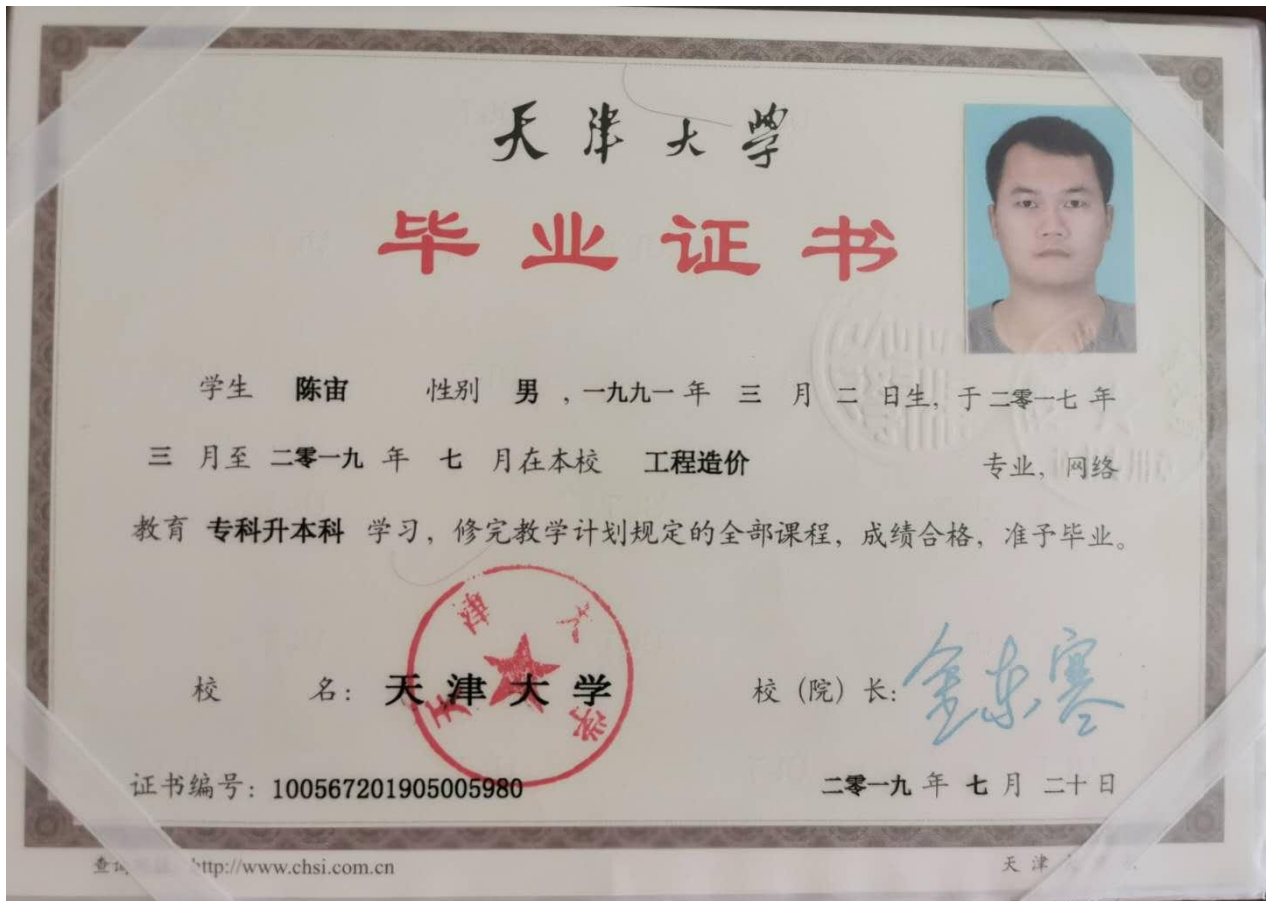 天津大学
毕业证书
学生 陈宙 性别 男 ,一九九一年 三 月 二 日生, 于二零一七年
三 月至 二零一九 年 七 月在本校 工程造价 专业, 网络
教育 专科升本科 学习, 修完教学计划规定的全部课程, 成绩合格, 准予毕业。
天津大学
校 名: 天津大学 校(院)长: 金东寒
证书编号: 100567201905005980 二零一九 年 七 月 二十日
查 http://www.chsi.com.cn 天津